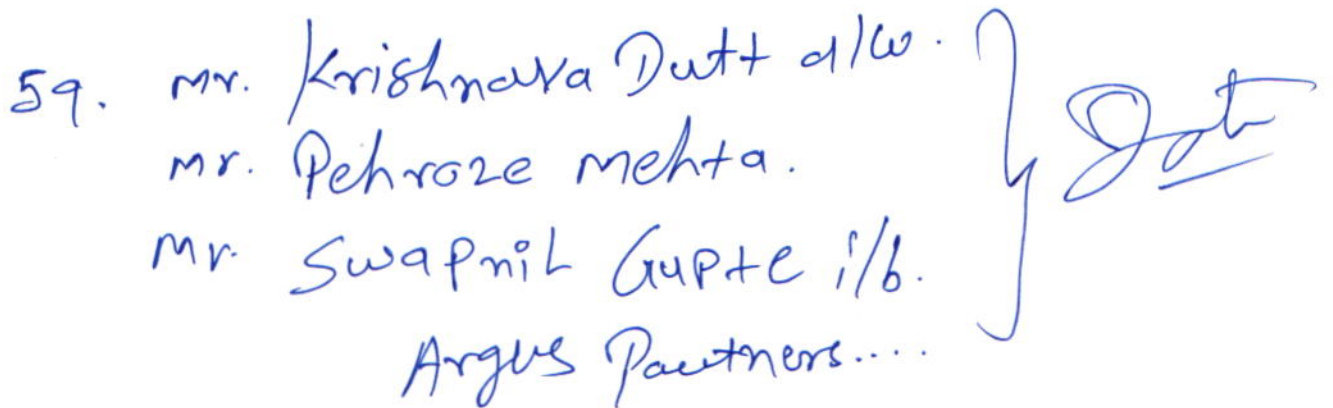 59. Mr. Krishnava Dutt a/w.
Mr. Pehroze Mehta.
Mr. Swapnil Gupte i/b.
Argus Partners....